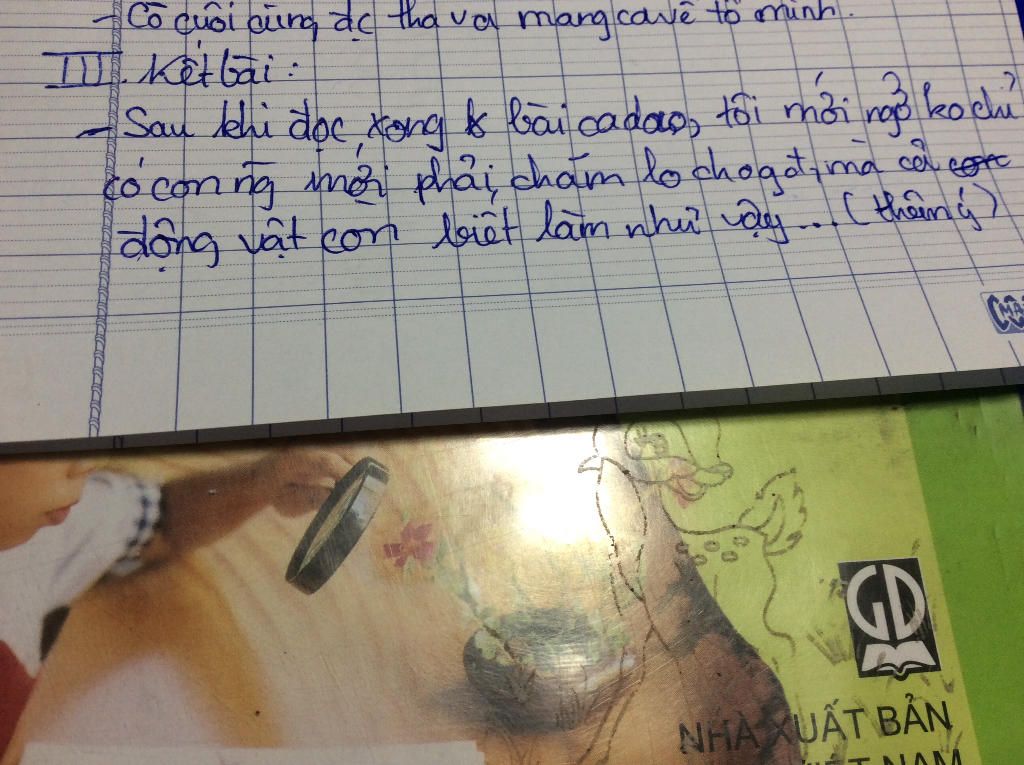 - Cò cuối cùng đc tha và mang cá về tổ mình.
III. Kết bài:
- Sau khi đọc xong bài ca dao, tôi mới ngờ ko chỉ
có con ng mới phải chăm lo cho gđ, mà cả
động vật con biết làm như vậy... (thêm ý)
GD
NHÀ XUẤT BẢN
VIỆT NAM